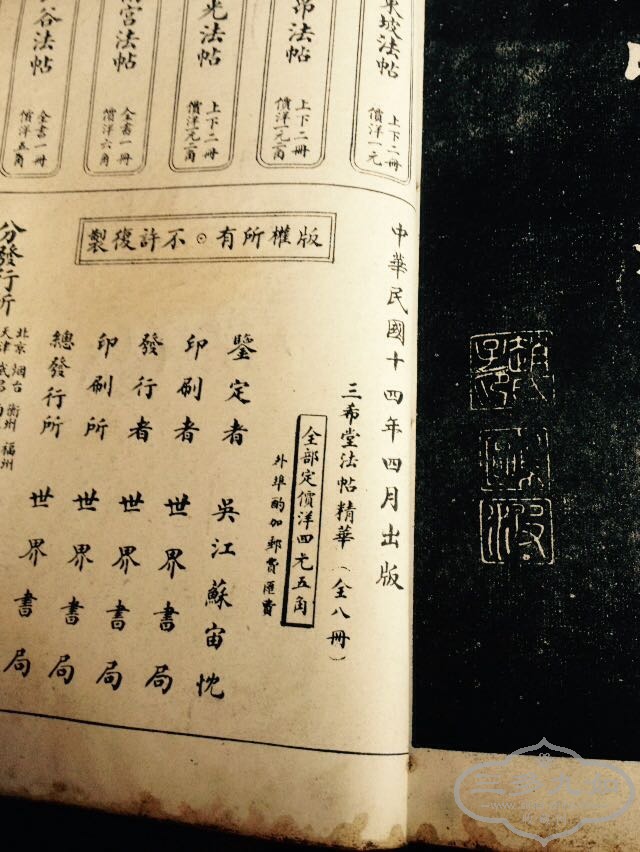 東坡法帖
上下二冊
價洋一元
法帖
上下二冊
價洋一元二角
光法帖
上下二冊
價洋一元二角
宮法帖
全書一冊
價洋六角
谷法帖
全書一冊
價洋五角
版權所有⊙不許復製
中華民國十四年四月出版
三希堂法帖精華（全八冊）
全部定價洋四元五角
外埠酌加郵費匯費
鑒定者 吳江蘇宙忱
印刷者 世界書局
發行者 世界書局
印刷所 世界書局
總發行所 世界書局
分發行所
北京 烟台 衢州 福州
天津